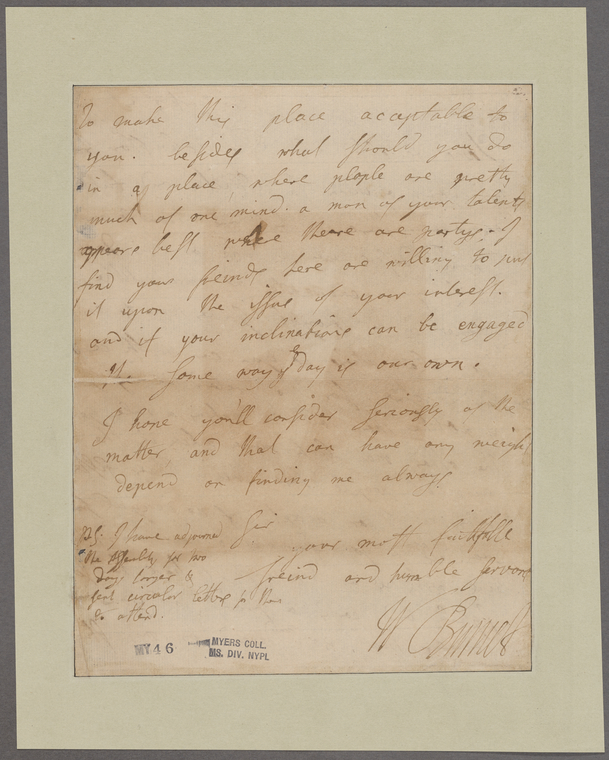 To make this place acceptable to
you. besides what should you do
in a place where people are pretty
much of one mind. a man of your talents
appears best where there are partys. I
find your freinds here are willing to put
it upon the issue of your interest.
and if your inclinations can be engaged
some way ye day is our own.
I hope you'll consider seriously of the
matter, and that can have any weight
depend on finding me always
Sir
your most faithfull
freind and humble servant
W Burnet
PS. I have adjourned
the Assembly for two
days longer &
sent circular letters for them
to attend.
MY 46
MYERS COLL.
MS. DIV. NYPL